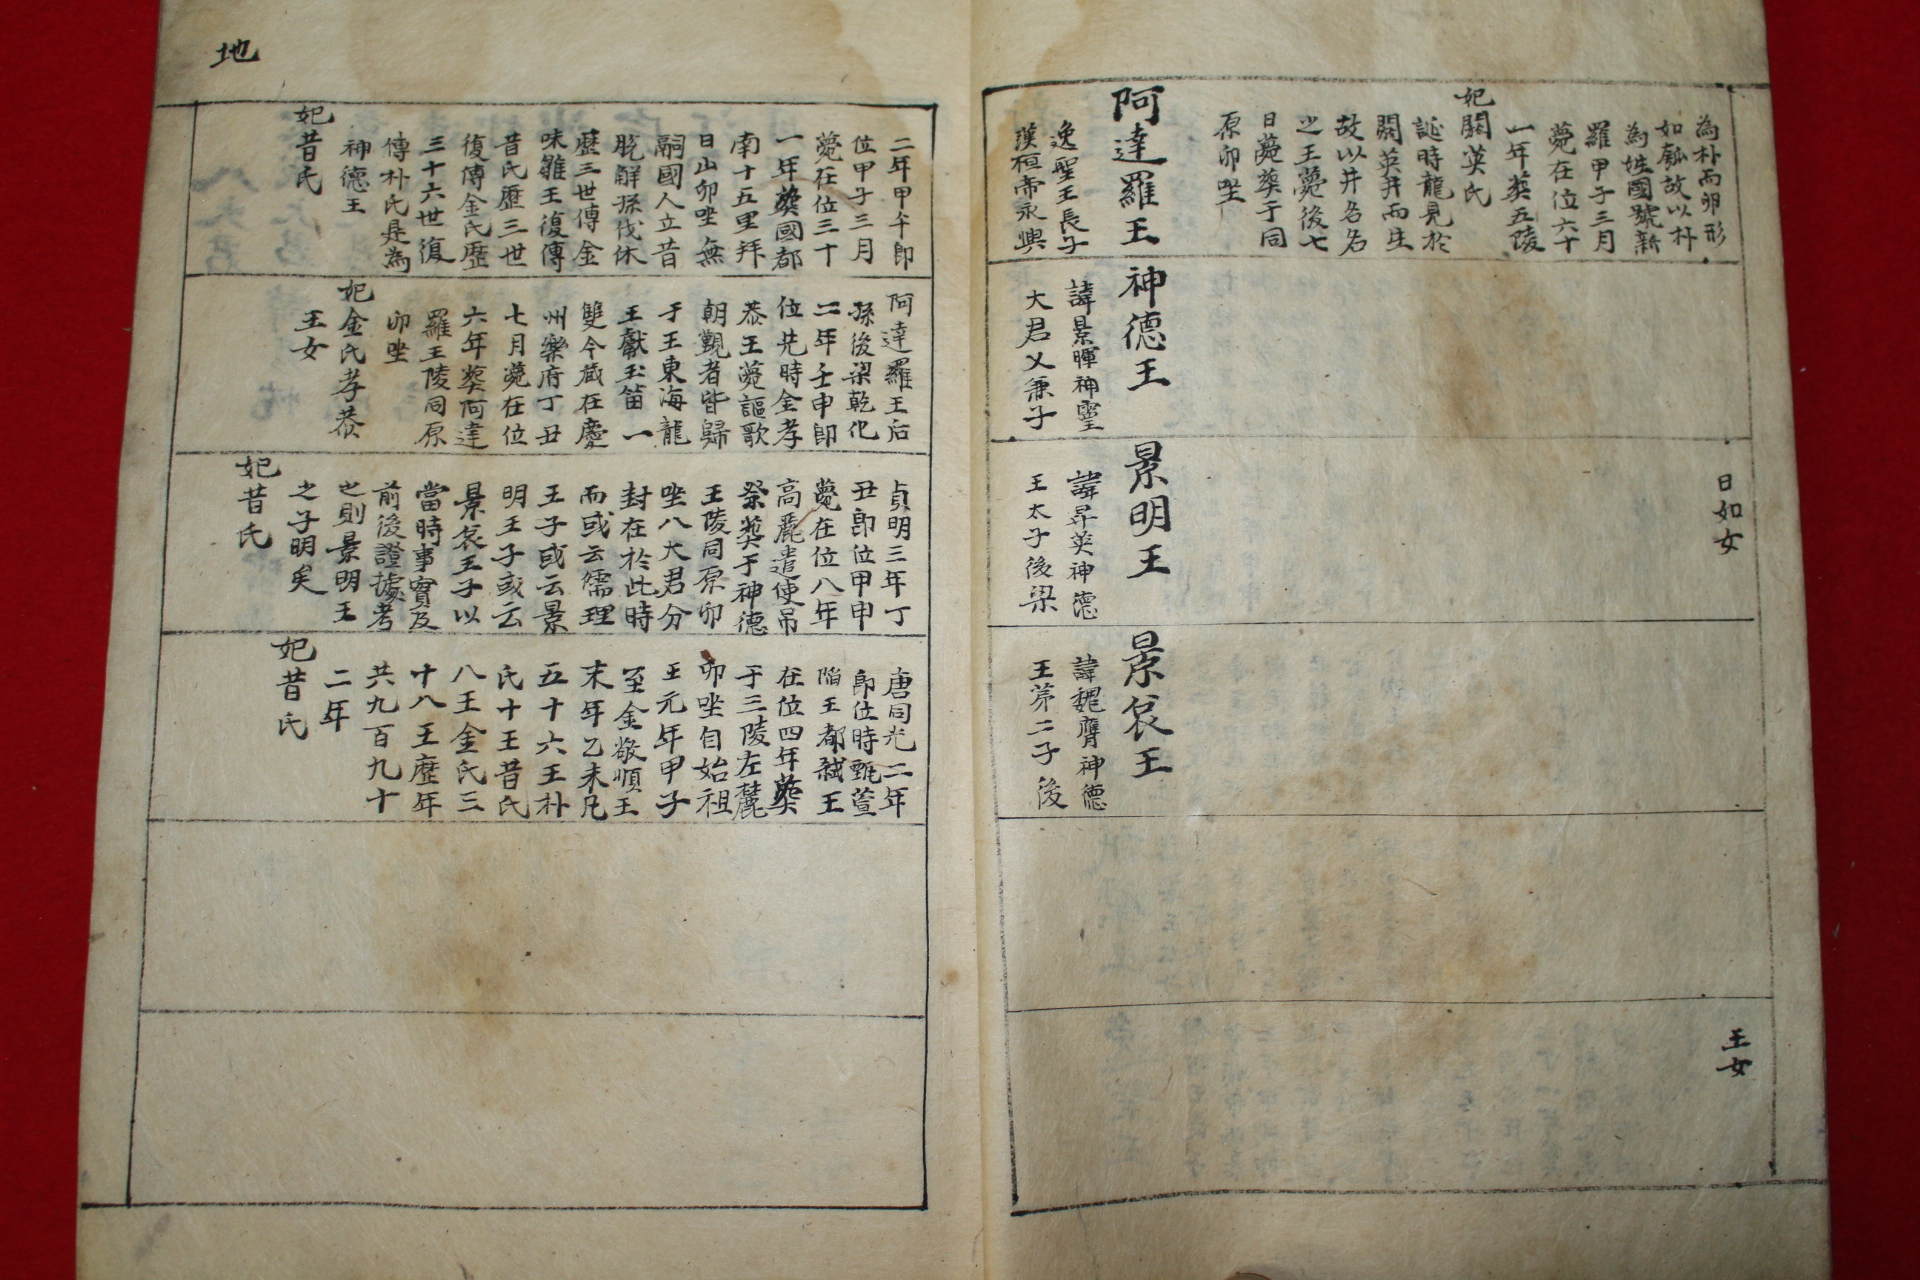 為朴而卵形
如瓠故以朴
為姓國號新
羅甲子三月
薨在位六十
一年葬五陵
妃閼英氏
誕時龍見於
閼英井而生
故以井名名
之王薨後七
日薨葬于同
原卯坐
阿達羅王
逸聖王長子
漢桓帝永興
神德王
諱景暉神靈
大君乂兼子
日如女
景明王
諱昇英神德
王太子後梁
景哀王
諱魏膺神德
王第二子後
王女
地
二年甲午卽
位甲子三月
薨在位三十
一年葬國都
南十五里拜
日山卯坐無
嗣國人立昔
脫解孫伐休
歷三世傳金
味雛王復傳
昔氏歷三世
復傳金氏歷
三十六世復
傳朴氏是為
神德王
妃昔氏
阿達羅王后
孫後梁乾化
二年壬申卽
位先時金孝
恭王薨謳歌
朝覲者皆歸
于王東海龍
王獻玉笛一
雙今藏在慶
州樂府丁丑
七月薨在位
六年葬阿達
羅王陵同原
卯坐
妃金氏孝恭
王女
貞明三年丁
丑卽位甲申
薨在位八年
高麗遣使吊
祭葬于神德
王陵同原卯
坐八大君分
封在於此時
而或云儒理
王子或云景
明王子或云
景哀王子以
當時事實及
前後證據考
之則景明王
之子明矣
妃昔氏
唐同光二年
卽位時甄萱
陷王都弑王
在位四年葬
于三陵左麓
卯坐自始祖
王元年甲子
至金敬順王
末年乙未凡
五十六王朴
氏十王昔氏
八王金氏三
十八王歷年
共九百九十
二年
妃昔氏